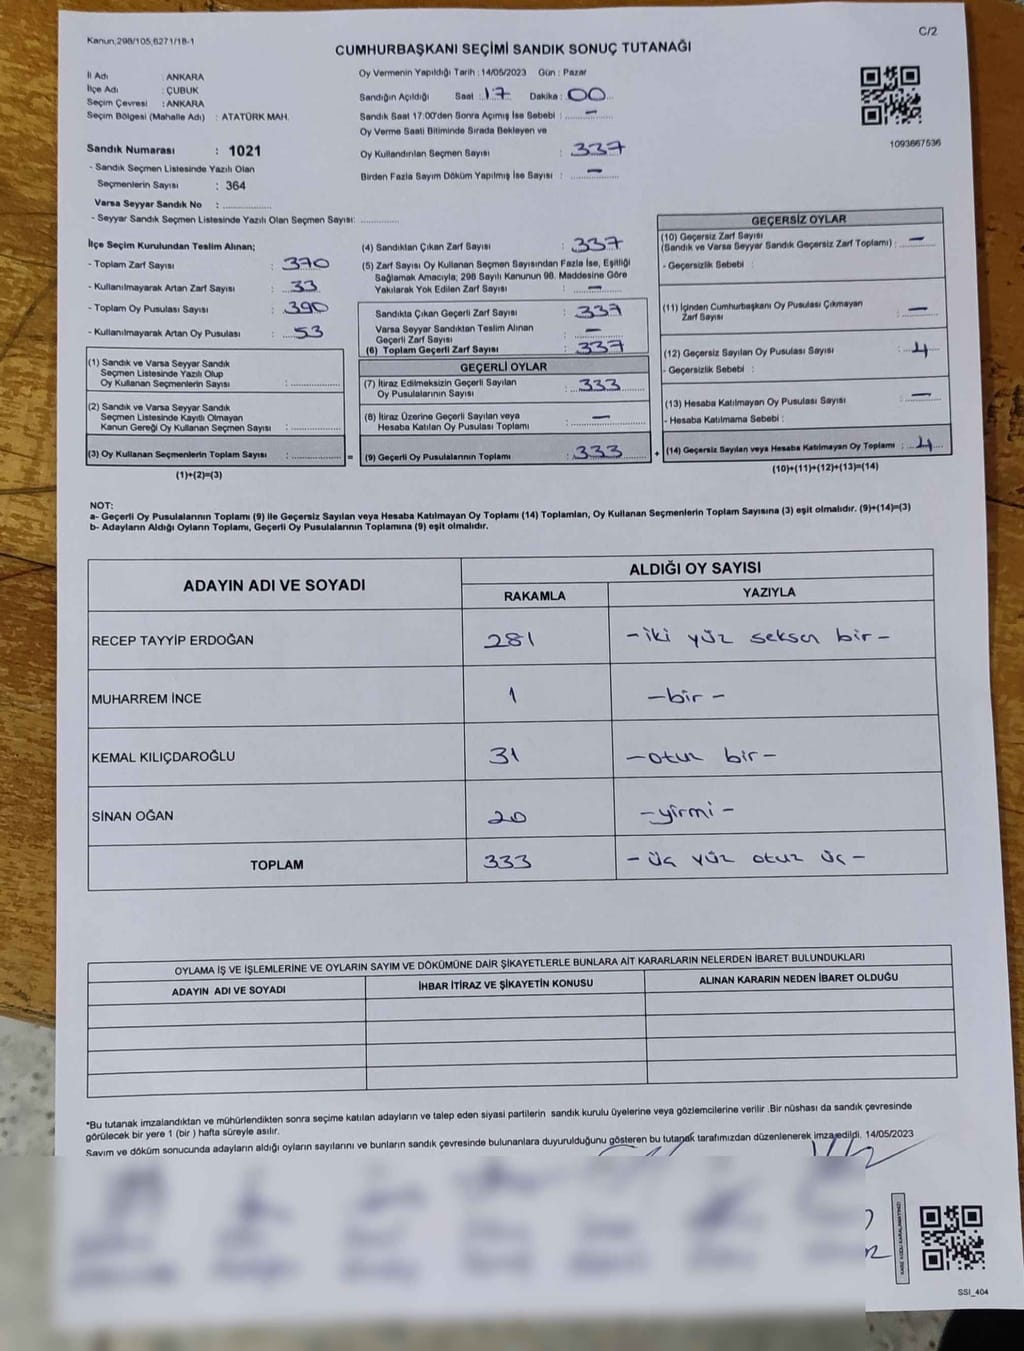 Kanun;298/105,6271/18-1
C/2
CUMHURBAŞKANI SEÇİMİ SANDIK SONUÇ TUTANAĞI
İl Adı : ANKARA
İlçe Adı : ÇUBUK
Seçim Çevresi : ANKARA
Seçim Bölgesi (Mahalle Adı) : ATATÜRK MAH.
Sandık Numarası : 1021
- Sandık Seçmen Listesinde Yazılı Olan
Seçmenlerin Sayısı : 364
Varsa Seyyar Sandık No : ............
- Seyyar Sandık Seçmen Listesinde Yazılı Olan Seçmen Sayısı: ............
Oy Vermenin Yapıldığı Tarih : 14/05/2023 Gün : Pazar
Sandığın Açıldığı Saat : 17 Dakika : 00
Sandık Saat 17:00'den Sonra Açılmış İse Sebebi : —
Oy Verme Saati Bitiminde Sırada Bekleyen ve
Oy Kullandırılan Seçmen Sayısı : 337
Birden Fazla Sayım Döküm Yapılmış İse Sayısı : —
1093667536
İlçe Seçim Kurulundan Teslim Alınan;
- Toplam Zarf Sayısı : 370
- Kullanılmayarak Artan Zarf Sayısı : 33
- Toplam Oy Pusulası Sayısı : 390
- Kullanılmayarak Artan Oy Pusulası : 53
(1) Sandık ve Varsa Seyyar Sandık
Seçmen Listesinde Yazılı Olup
Oy Kullanan Seçmenlerin Sayısı : ............
(2) Sandık ve Varsa Seyyar Sandık
Seçmen Listesinde Kayıtlı Olmayan
Kanun Gereği Oy Kullanan Seçmen Sayısı : ............
(3) Oy Kullanan Seçmenlerin Toplam Sayısı : ............ =
(1)+(2)=(3)
(4) Sandıktan Çıkan Zarf Sayısı : 337
(5) Zarf Sayısı Oy Kullanan Seçmen Sayısından Fazla İse, Eşitliği
Sağlamak Amacıyla; 298 Sayılı Kanunun 98. Maddesine Göre
Yakılarak Yok Edilen Zarf Sayısı : —
Sandıkta Çıkan Geçerli Zarf Sayısı : 337
Varsa Seyyar Sandıktan Teslim Alınan
Geçerli Zarf Sayısı : —
(6) Toplam Geçerli Zarf Sayısı : 337
GEÇERLİ OYLAR
(7) İtiraz Edilmeksizin Geçerli Sayılan
Oy Pusulalarının Sayısı : 333
(8) İtiraz Üzerine Geçerli Sayılan veya
Hesaba Katılan Oy Pusulası Toplamı : —
(9) Geçerli Oy Pusulalarının Toplamı : 333 +
GEÇERSİZ OYLAR
(10) Geçersiz Zarf Sayısı
(Sandık ve Varsa Seyyar Sandık Geçersiz Zarf Toplamı) : —
- Geçersizlik Sebebi :
(11) İçinden Cumhurbaşkanı Oy Pusulası Çıkmayan
Zarf Sayısı : —
(12) Geçersiz Sayılan Oy Pusulası Sayısı : 4
- Geçersizlik Sebebi :
(13) Hesaba Katılmayan Oy Pusulası Sayısı : —
- Hesaba Katılmama Sebebi :
(14) Geçersiz Sayılan veya Hesaba Katılmayan Oy Toplamı : 4
(10)+(11)+(12)+(13)=(14)
NOT:
a- Geçerli Oy Pusulalarının Toplamı (9) ile Geçersiz Sayılan veya Hesaba Katılmayan Oy Toplamı (14) Toplamları, Oy Kullanan Seçmenlerin Toplam Sayısına (3) eşit olmalıdır. (9)+(14)=(3)
b- Adayların Aldığı Oyların Toplamı, Geçerli Oy Pusulalarının Toplamına (9) eşit olmalıdır.
ADAYIN ADI VE SOYADI
ALDIĞI OY SAYISI
RAKAMLA YAZIYLA
RECEP TAYYİP ERDOĞAN 281 - iki yüz seksen bir -
MUHARREM İNCE 1 - bir -
KEMAL KILIÇDAROĞLU 31 - otuz bir -
SİNAN OĞAN 20 - yirmi -
TOPLAM 333 - üç yüz otuz üç -
OYLAMA İŞ VE İŞLEMLERİNE VE OYLARIN SAYIM VE DÖKÜMÜNE DAİR ŞİKAYETLERLE BUNLARA AİT KARARLARIN NELERDEN İBARET BULUNDUKLARI
ADAYIN ADI VE SOYADI İHBAR İTİRAZ VE ŞİKAYETİN KONUSU ALINAN KARARIN NEDEN İBARET OLDUĞU
*Bu tutanak imzalandıktan ve mühürlendikten sonra seçime katılan adayların ve talep eden siyasi partilerin sandık kurulu üyelerine veya gözlemcilerine verilir .Bir nüshası da sandık çevresinde
görülecek bir yere 1 (bir ) hafta süreyle asılır.
Sayım ve döküm sonucunda adayların aldığı oyların sayılarını ve bunların sandık çevresinde bulunanlara duyurulduğunu gösteren bu tutanak tarafımızdan düzenlenerek imza edildi. 14/05/2023
KARE KODU KARALAMAYINIZ!
SSI_404